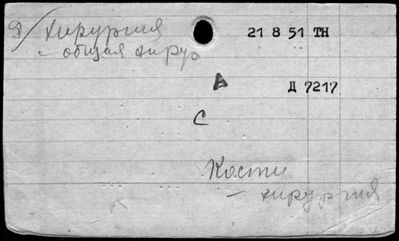 9/ хирургия 21 8 51 ТН
- общая хирур.
А Д 7217
С
Кости
- хирургия